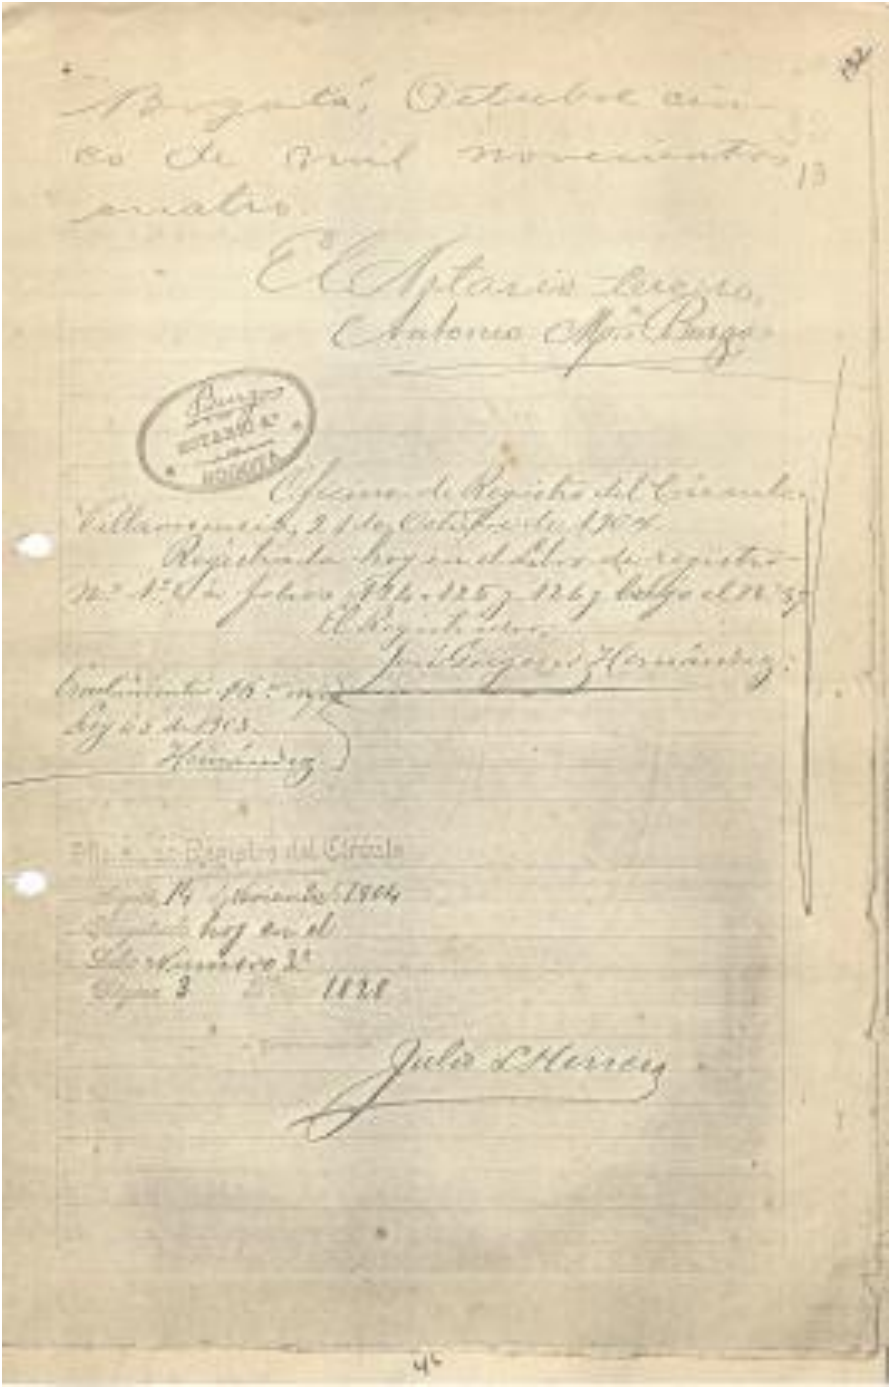 132
Bogotá, Octubre cin-
co de mil novecientos
13
cuatro.
El Notario tercero,
Antonio Mª Burgos
Burgos
NOTARIO 3º
BOGOTA
Oficina de Registro del Circuito
Villavicencio, 21 de Octubre de 1904.
Registrada hoy en el Libro de registro
Nº 1º a folios 124, 125 y 126 y bajo el Nº
El Registrador,
José Gregorio Hernández.
Ley de 1903.
Hernández
Registro del Circuito
14 Noviembre 1904
hoy en el
Libro Número 1º
3 1828
Julio S Herrera
46